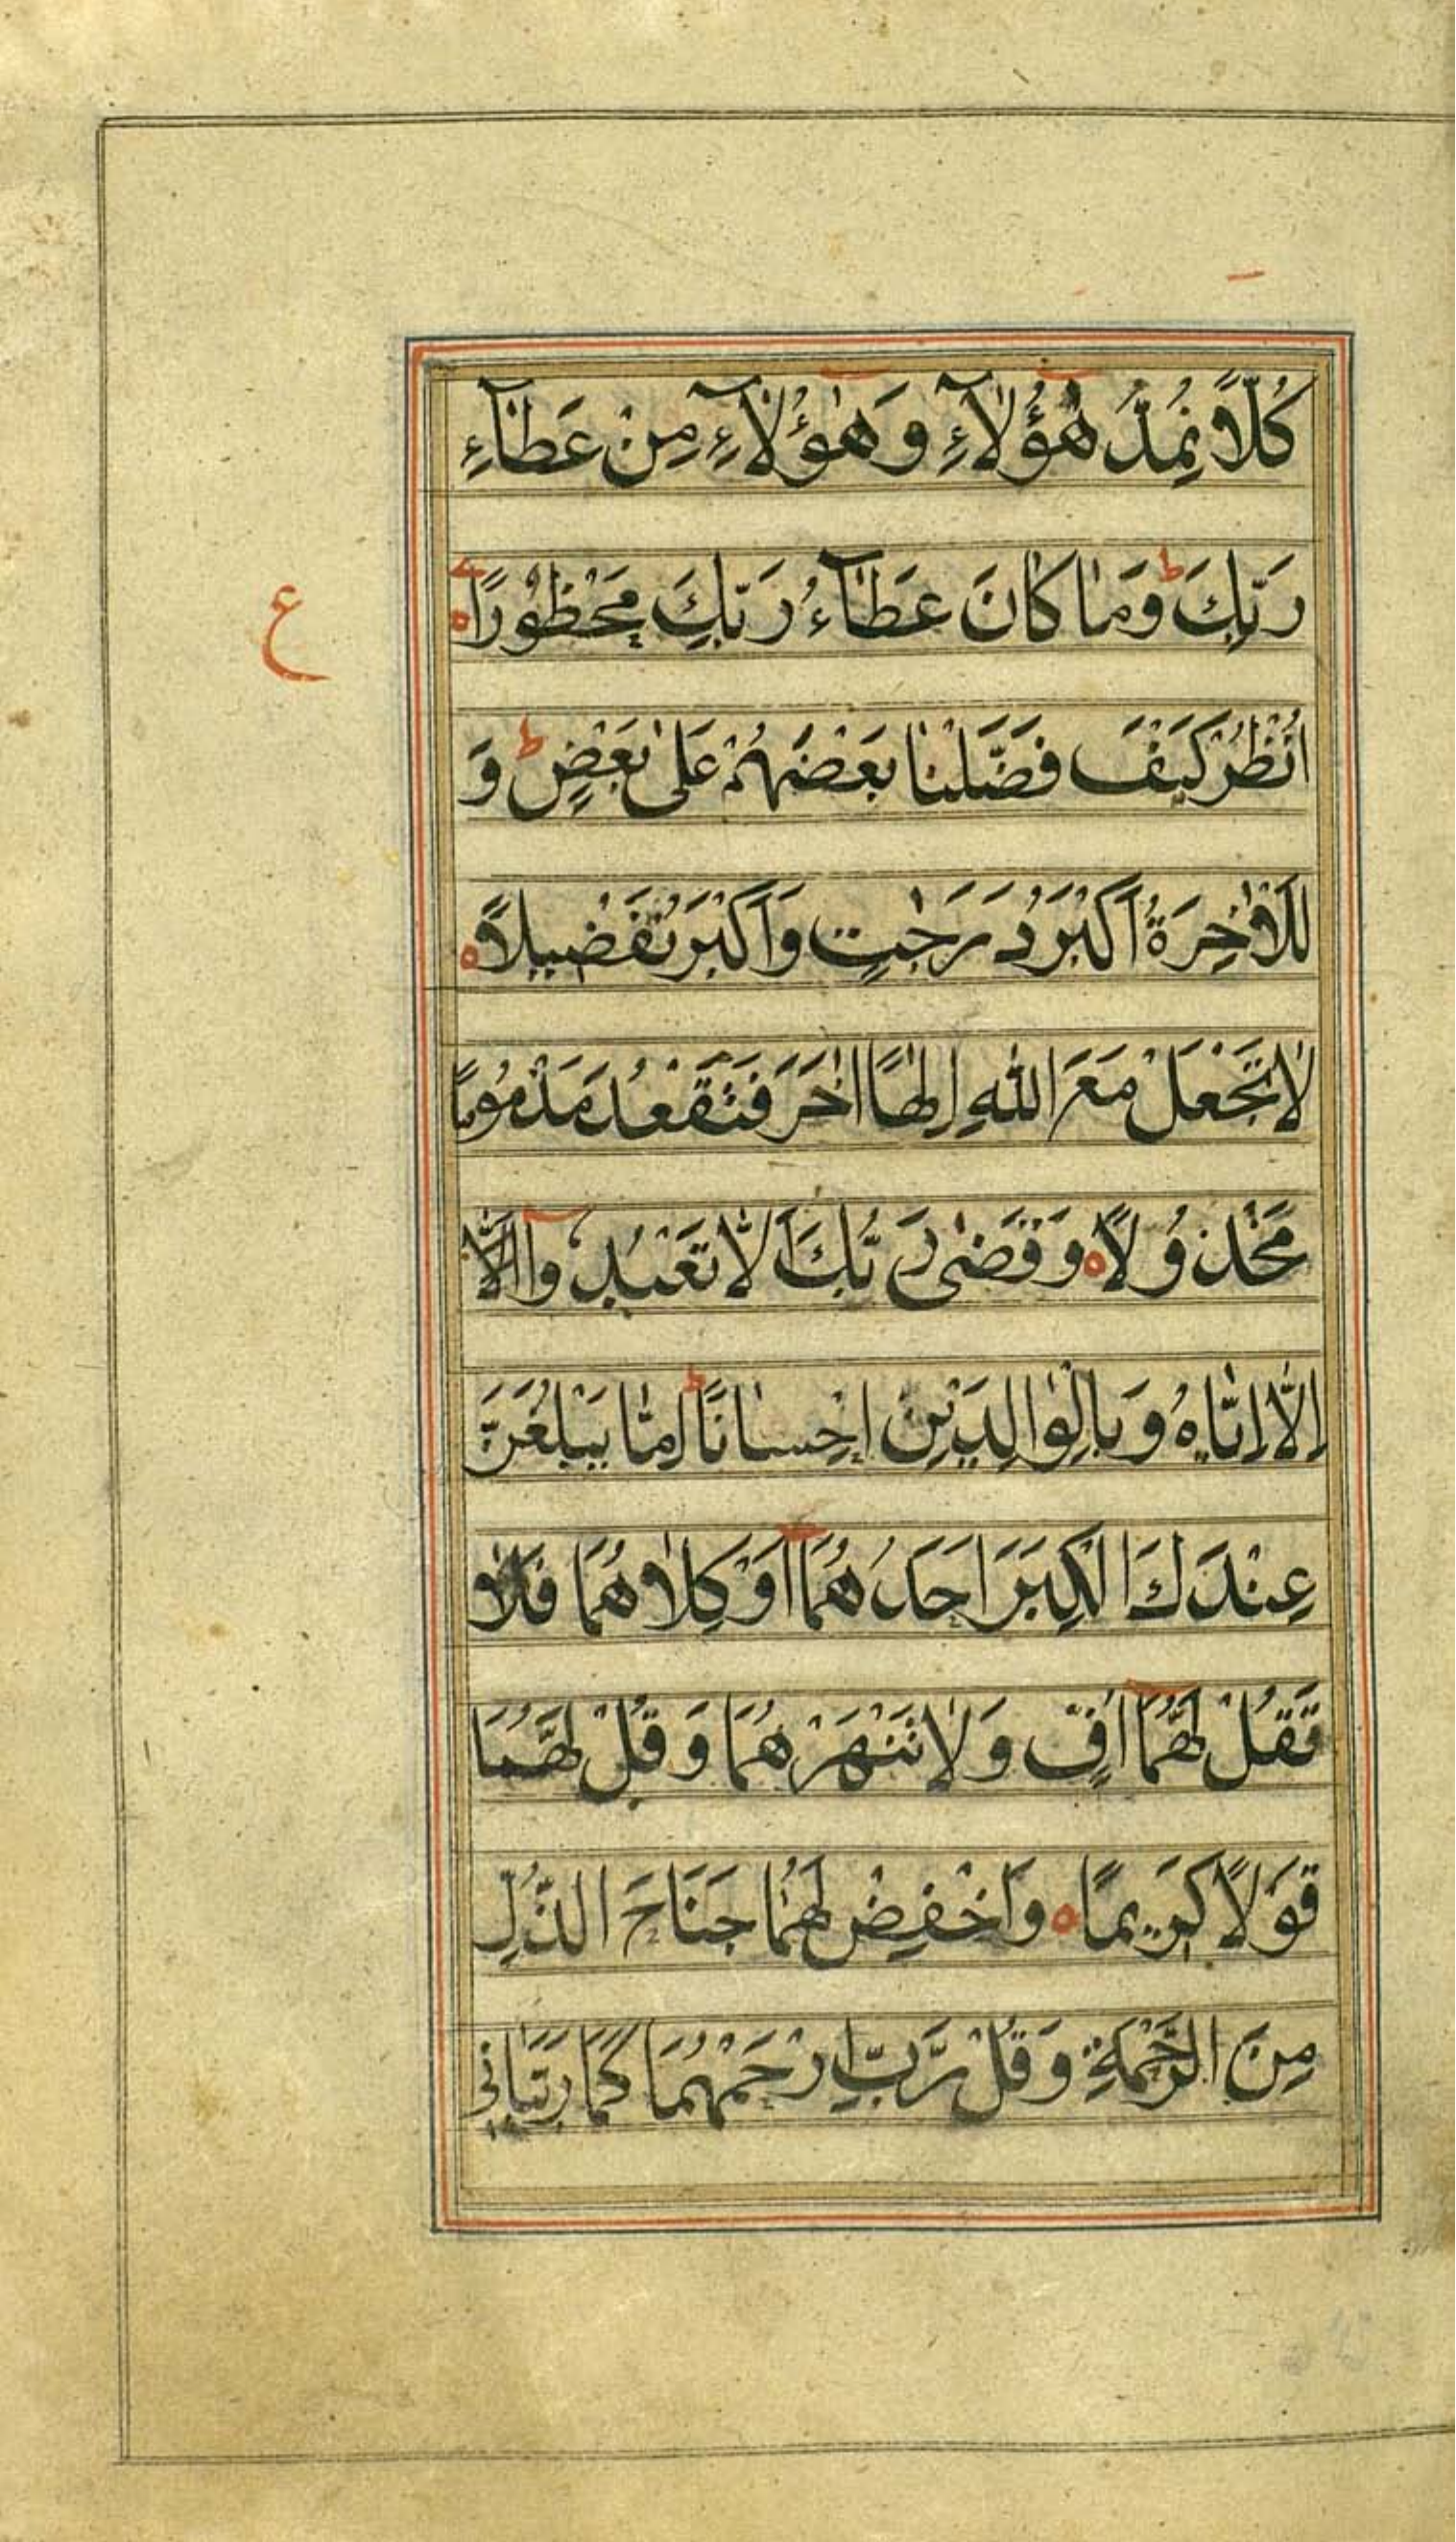 كُلًّا نُمِدُّ هٰٓؤُلَآءِ وَهٰٓؤُلَآءِ مِنْ عَطَآءِ
رَبِّكَ ؕ وَمَا كَانَ عَطَآءُ رَبِّكَ مَحْظُوْرًا ہ
ع
اُنْظُرْ كَيْفَ فَضَّلْنَا بَعْضَهُمْ عَلٰى بَعْضٍ ؕ وَ
لَلْاٰخِرَةُ اَكْبَرُ دَرَجٰتٍ وَاَكْبَرُ تَفْضِيْلًا ہ
لَا تَجْعَلْ مَعَ اللّٰهِ اِلٰهًا اٰخَرَ فَتَقْعُدَ مَذْمُوْمًا
مَخْذُوْلًا ہ وَقَضٰى رَبُّكَ اَلَّا تَعْبُدُوْٓا اِلَّا
اِلَّا اِيَّاهُ وَبِالْوَالِدَيْنِ اِحْسَانًا ؕ اِمَّا يَبْلُغَنَّ
عِنْدَكَ الْكِبَرَ اَحَدُهُمَآ اَوْ كِلَاهُمَا فَلَا
تَقُلْ لَهُمَآ اُفٍّ وَلَا تَنْهَرْهُمَا وَقُلْ لَهُمَا
قَوْلًا كَرِيْمًا ہ وَاخْفِضْ لَهُمَا جَنَاحَ الذُّلِّ
مِنَ الرَّحْمَةِ وَقُلْ رَّبِّ ارْحَمْهُمَا كَمَا رَبَّيَانِى